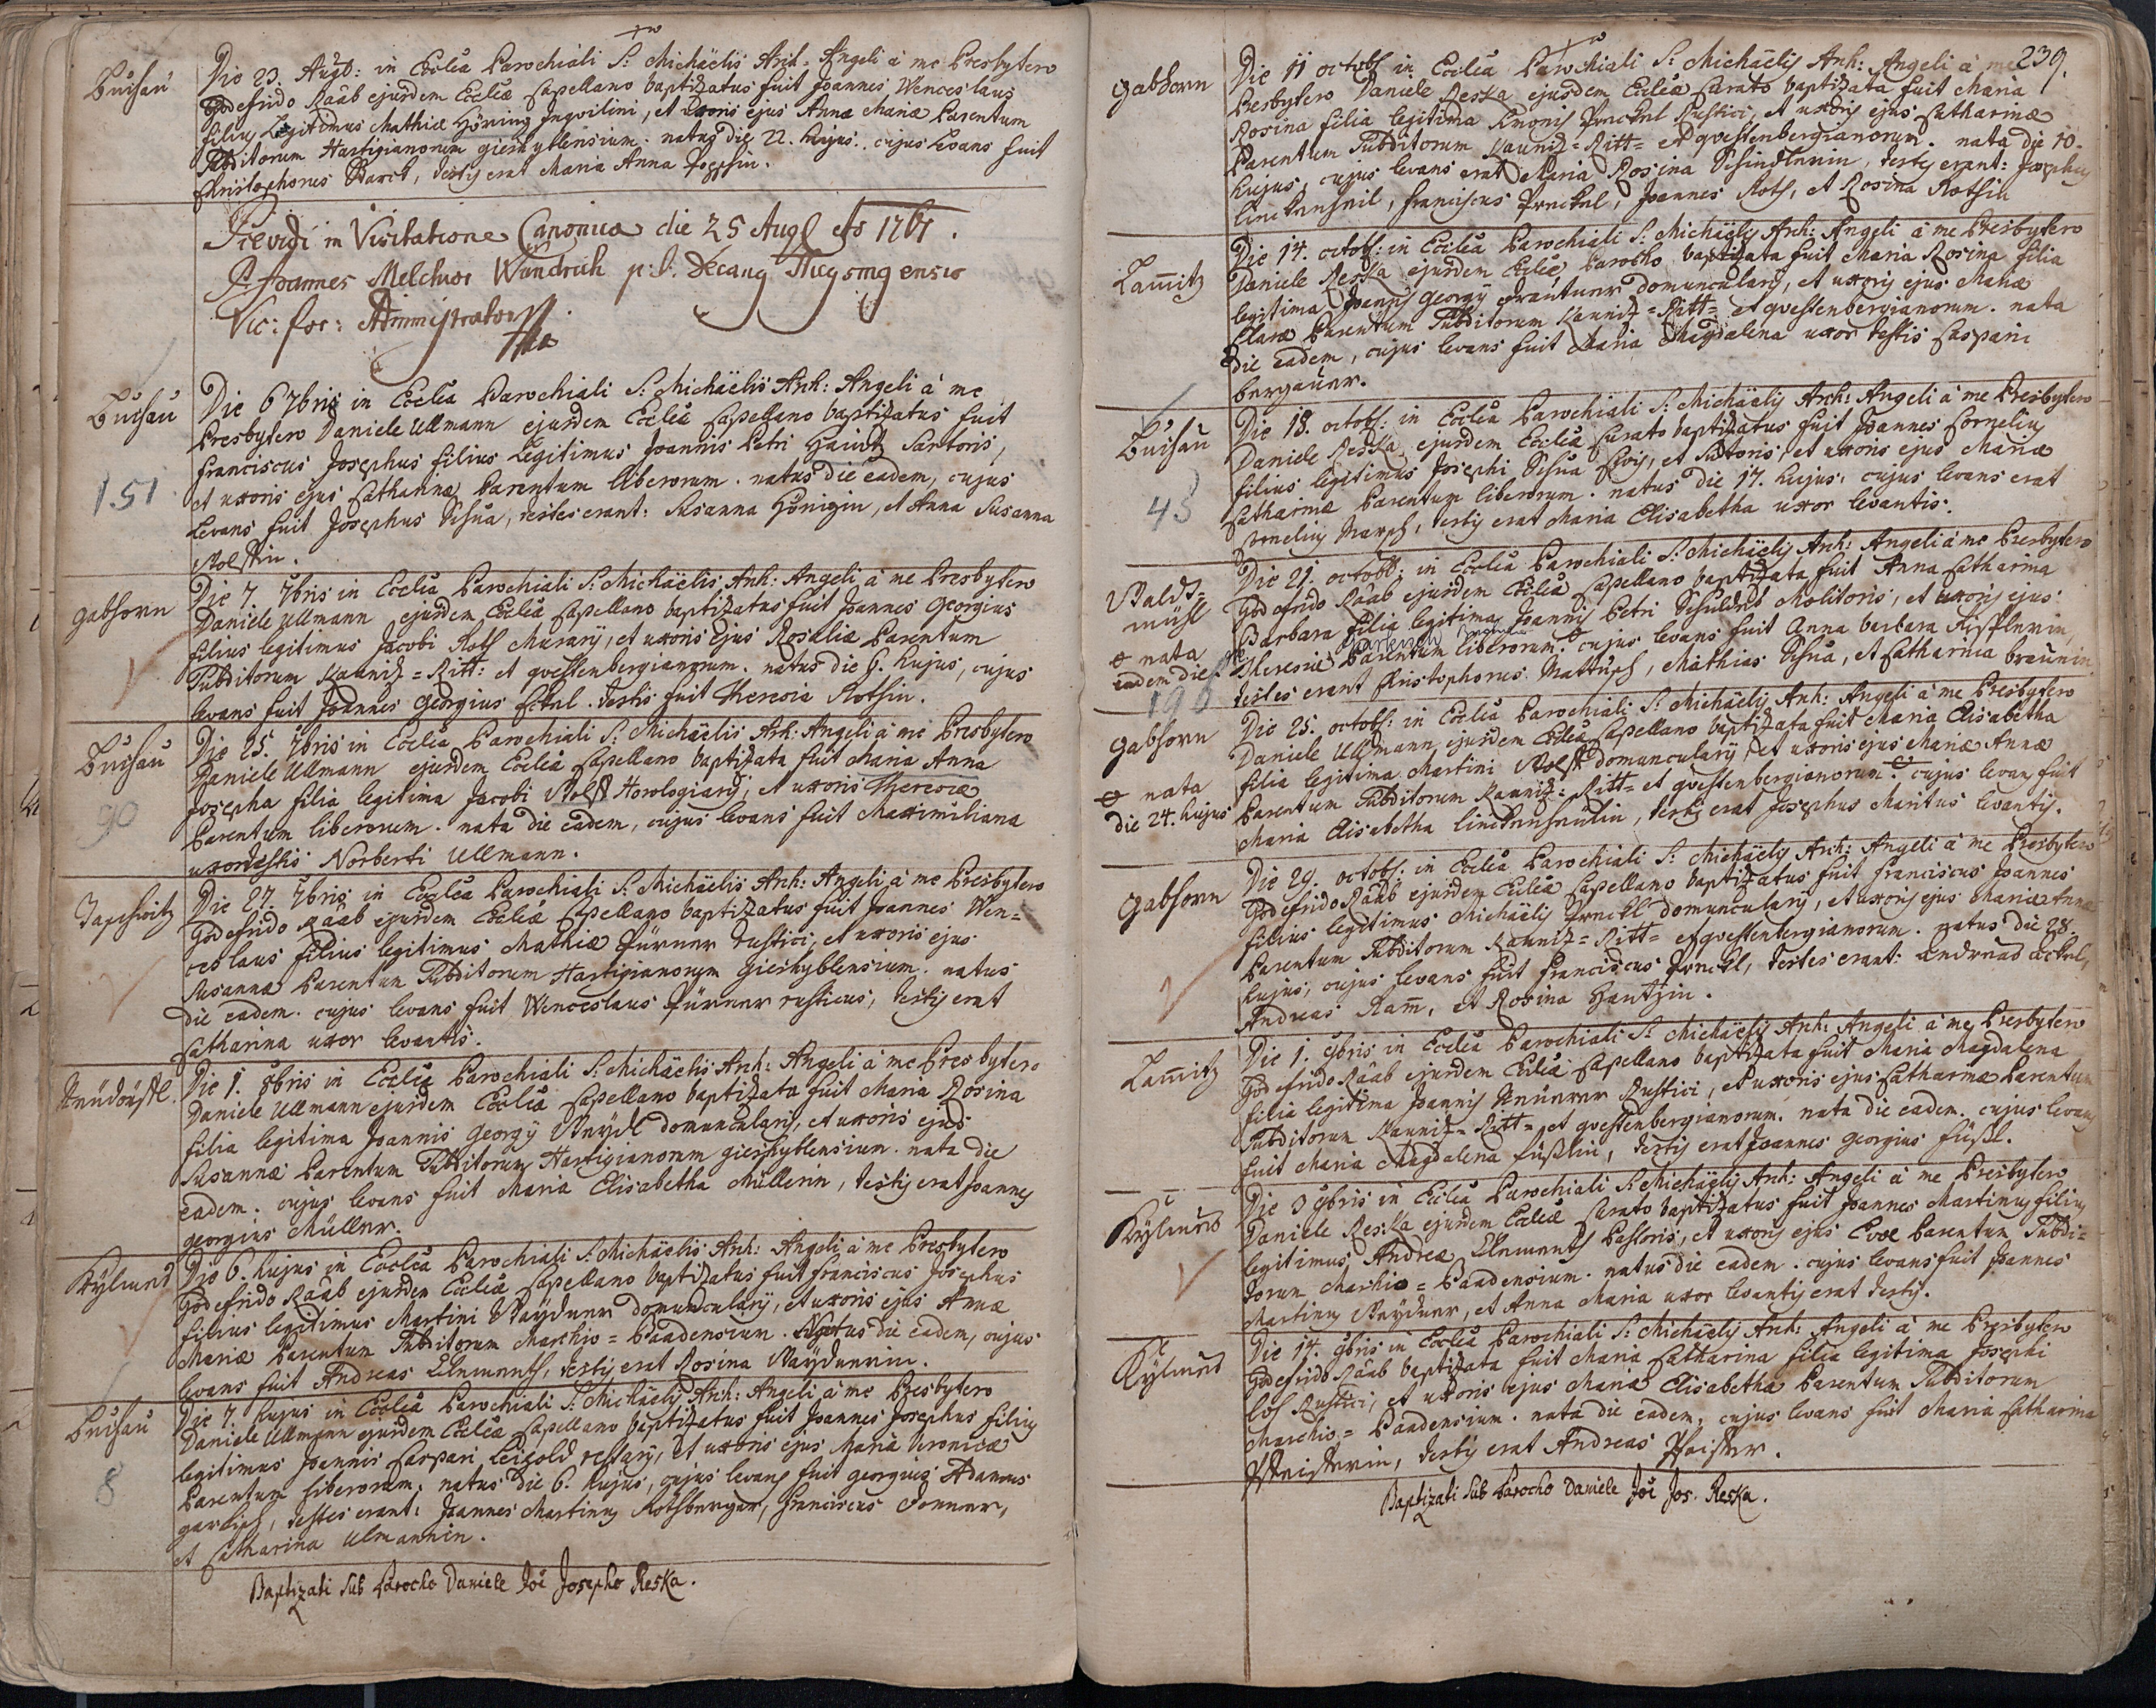 Buchau
Die 23. Augb: in Ecclia Parochiali S: Michäelis Arch: Angeli à me Presbytero
Godefrido Raab ejusdem Ecclia Capellano baptizatus fuit Joannes Wenceslaus
filius Legitimus Mathiæ Höning Inqvilini, et uxoris ejus Annæ Mariæ Parentum
Subditorum Hartigianorum gieshyblensium. natus die 22. hujus. cujus Levans fuit
Christophorus Starck, testis erat Maria Anna
Prævidi in Visitatione Canonica die 25 Aug Ao 1761.
P. Joannes Melchior Wundrich p: t. Decanus
Vic: for: Administrator
Buchau
151
Die 6 7bris in Ecclia Parochiali S: Michäelis Arch: Angeli à me
Presbytero Daniele Ullmann ejusdem Ecclia Capellano baptizatus fuit
Franciscus Josephus filius Legitimus Joannis Petri Haintz Sartoris,
et uxoris ejus Catharinæ Parentum liberorum. natus die eadem, cujus
Levans fuit Josephus Schua, testes erant: Susanna Hönigin, et Anna Susanna
Wolffin.
gabhorn
Die 7 7bris in Ecclia Parochiali S: Michäelis Arch: Angeli à me Presbytero
Daniele Ullmann ejusdem Ecclia Capellano baptizatus fuit Joannes Georgius
filius legitimus Jacobi Roth Murarij, et uxoris ejus Rosaliæ Parentum
Subditorum Kauniz=Ritt: et qvestenbergianorum. natus die 6. hujus, cujus
levans fuit Joannes Georgius Eckel. testis fuit Theresia Rothin.
Buchau
90
Die 25. 7bris in Ecclia Parochiali S: Michäelis Arh: Angeli à me Presbytero
Daniele Ullmann ejusdem Ecclia Capellano baptizata fuit Maria Anna
Josepha filia legitima Jacobi Wolff Horologiarij, et uxoris Theresiæ
Parentum liberorum. nata die eadem, cujus levans fuit Maximiliana
uxor testis Norberti Ullmann.
Die 27. 7bris in Ecclia Parochiali S: Michäelis Arh: Angeli à me Presbytero
Godefrido Raab ejusdem Ecclia Capellano baptizatus fuit Joannes Wen=
ceslaus filius legitimus Mathiæ Fürner rustici, et uxoris ejus
Susannæ Parentum Subditorum Hartigianorum gieshyblensium. natus
die eadem. cujus levans fuit Wenceslaus Fürner rusticus, testis erat
Catharina uxor levantis.
Neüdörffl.
Die 1. 8bris in Ecclia Parochiali S: Michäelis Arh: Angeli à me Presbytero
Daniele Ullmann ejusdem Ecclia Capellano baptizata fuit Maria Rosina
filia legitima Joannis Georgij domuncularij, et uxoris ejus
Susannæ Parentum Subditorum Hartigianorum gieshyblensium. nata die
eadem. cujus levans fuit Maria Elisabetha Müllerin, testis erat Joannes
georgius Müller.
Die 6. hujus in Ecclia Parochiali S: Michäelis Arh: Angeli à me Presbytero
Godefrido Raab ejusdem Ecclia Capellano baptizatus fuit Franciscus Josephus
filius legitimus Martini domuncularij, et uxoris ejus Annæ
Mariæ Parentum Subditorum Marchio=Baadensium. Natus die eadem, cujus
levans fuit Andreas Clement, testis erat Rosina
Buchau
8
Die 7. hujus in Ecclia Parochiali S: Michäelis Arch: Angeli à me Presbytero
Daniele Ullmann ejusdem Ecclia Capellano baptizatus fuit Joannes Josephus filius
legitimus Joannis Caspari Leipold restarij, et uxoris ejus Mariæ Veronicæ
Parentum liberorum. natus die 6. hujus, cujus levans fuit georgius Adamus
testes erant: Joannes Martinus Rothberger, Franciscus
et Catharina Ulmannin.
Baptizati Sub Parocho Daniele Joi Josepho Reska.
239.
gabhorn
Die 11 octob: in Ecclia Parochiali S: Michäelis Arh: Angeli à me
Presbytero Daniele Reska ejusdem Ecclia Curato baptizata fuit Maria
Rosina filia legitima Rustici, et uxoris ejus Catharinæ
Parentum Subditorum Kauniz=Ritt= et qvestenbergianorum. nata die 10.
hujus, cujus levans erat Maria Rosina testes erant: Josephus
Franciscus Joannes Roth, et Rosina Rothin
Lam̄itz
Die 14. octob: in Ecclia Parochiali S: Michäelis Arh: Angeli à me Presbytero
Daniele Reska ejusdem Ecclia Parocho baptizata fuit Maria Rosina filia
legitima Joannis georgij domuncularij, et uxoris ejus Mariæ
Claræ Parentum Subditorum Kauniz=Ritt= et qvestenbergianorum. nata
die eadem, cujus levans fuit Maria Magdalena uxor testis Caspari
bergauer.
Buchau
43
Die 18. octob: in Ecclia Parochiali S: Michäelis Arch: Angeli à me Presbytero
Daniele Reska ejusdem Ecclia Curato baptizatus fuit Joannes Cornelius
filius legitimus Josephi Schua Civis, et Sutoris, et uxoris ejus Mariæ
Catharinæ Parentum liberorum. natus die 17. hujus. cujus levans erat
Cornelius testis erat Maria Elisabetha uxor levantis.
Waldt=
mühl
nata
eadem die
Die 21. octob: in Ecclia Parochiali S: Michäelis Arh: Angeli à me Presbytero
Godefrido Raab ejusdem Ecclia Capellano baptizata fuit Anna Catharina
Barbara filia legitima Joannis Petri Molitoris, et uxoris ejus
Theresiæ Parentum liberorum. cujus levans fuit Anna barbara
testes erant Christophorus Mathias Schua, et Catharina braunin
gabhorn
nata
die 24. hujus
Die 25. octob: in Ecclia Parochiali S: Michäelis Arh: Angeli à me Presbytero
Daniele Ullmann ejusdem Ecclia Capellano baptizata fuit Maria Elisabetha
filia legitima Martini Wolff domuncularij, et uxoris ejus Mariæ Annæ
Parentum Subditorum Kauniz: Ritt= et qvestenbergianorum. cujus levans fuit
Maria Elisabetha testis erat Josephus Maritus levantis.
gabhorn
Die 29. octob: in Ecclia Parochiali S: Michäelis Arh: Angeli à me Presbytero
Godefrido Raab ejusdem Ecclia Capellano baptizatus fuit Franciscus Joannes
filius legitimus Michäelis domuncularij, et uxoris ejus Mariæ Annæ
Parentum Subditorum Kauniz=Ritt= et qvestenbergianorum. natus die 28.
hujus, cujus levans fuit Franciscus testes erant:
Andreas Ram̄, et Rosina Hantzin.
Lam̄itz
Die 1. 9bris in Ecclia Parochiali S: Michäelis Arh: Angeli à me Presbytero
Godefrido Raab ejusdem Ecclia Capellano baptizata fuit Maria Magdalena
filia legitima Joannis Rustici, et uxoris ejus Catharinæ Parentum
Subditorum Kauniz=Ritt= et qvestenbergianorum. nata die eadem. cujus levans
fuit Maria Magdalena Füßlin, testis erat Joannes georgius Füßl.
Die 3 9bris in Ecclia Parochiali S: Michäelis Arh: Angeli à me Presbytero
Daniele Reska ejusdem Ecclia Curato baptizatus fuit Joannes Martinus filius
legitimus Andreæ Pastoris, et uxoris ejus Evæ Parentum Subdi=
torum Marchio=Baadensium. natus die eadem. cujus levans fuit Joannes
Martinus et Anna Maria uxor levantis erat testis.
Die 14. 9bris in Ecclia Parochiali S: Michäelis Arh: Angeli à me Presbytero
Godefrido Raab baptizata fuit Maria Catharina filia legitima Josephi
Rustici, et uxoris ejus Mariæ Elisabethæ Parentum Subditorum
Marchio=Baadensium. nata die eadem, cujus levans fuit Maria Catharina
testis erat Andreas
Baptizati Sub Parocho Daniele Joi Jos. Reska.